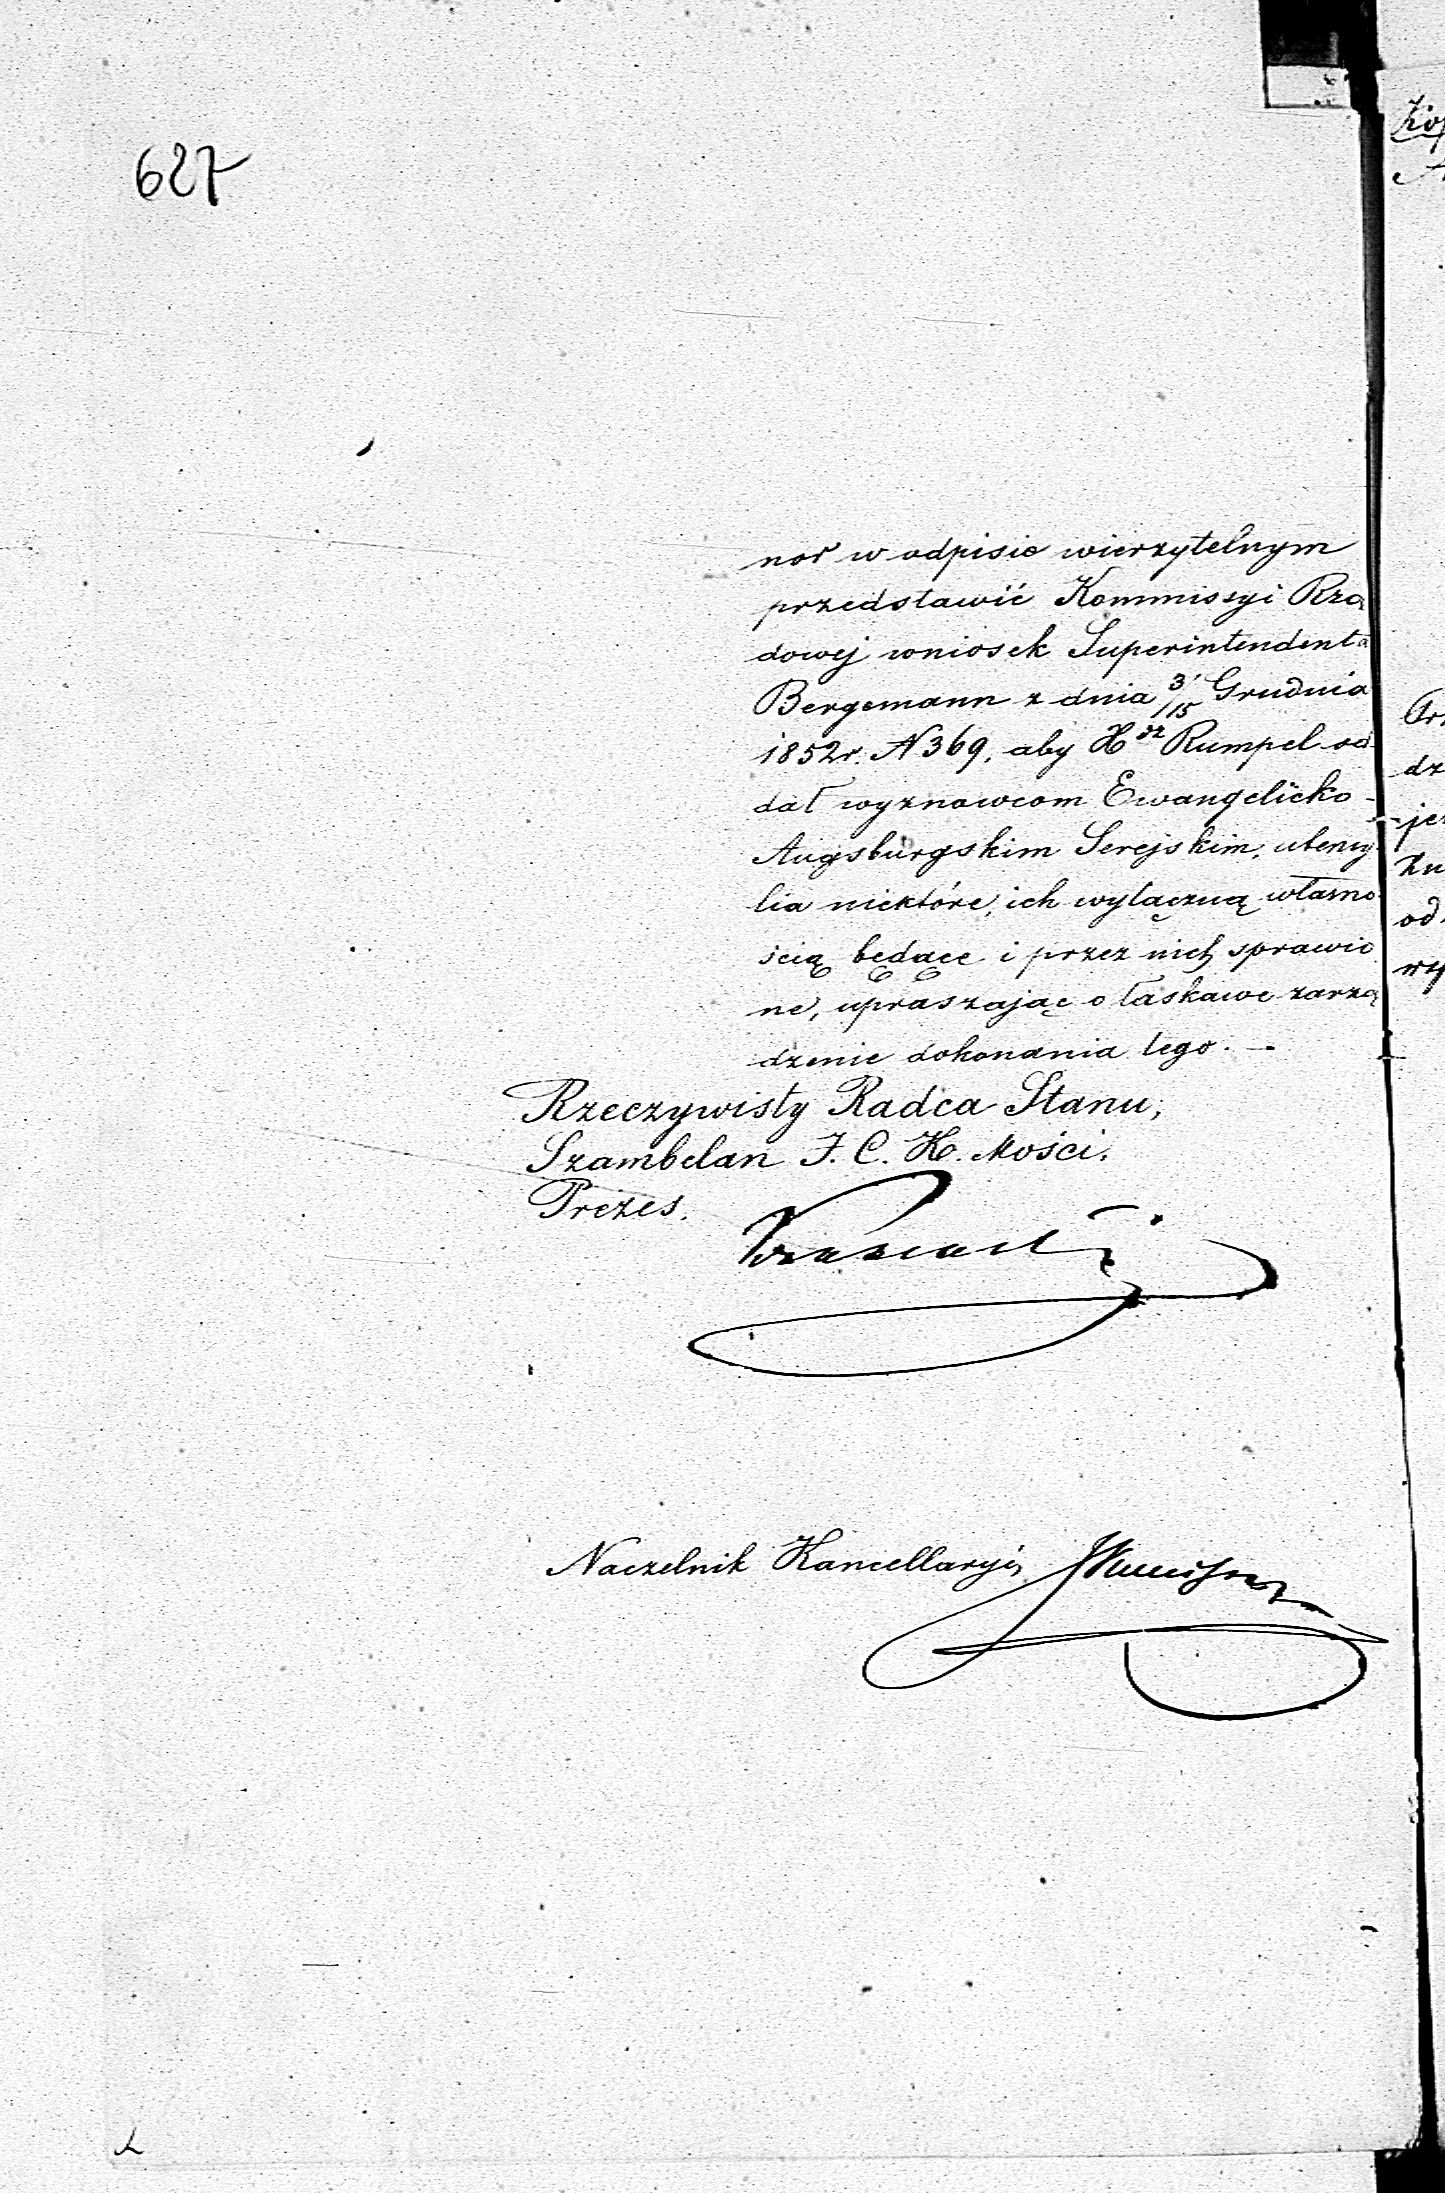 627
nor w odpisie wierzytelnym
przedstawić Kommissyi Rzą
dowej wniosek Superintendenta
Bergemann z dnia 3/15 Grudnia
1852 r. N 369, aby X dz Rumpel od
dał wyznawcom Ewangelicko-
Augsburgskim Serejskim, utensy
lia niektóre, ich wyłączną własno
ścią będące i przez nich sprawio
ne, upraszając o łaskawe zarzą
dzenie dokonania tego. —
Rzeczywisty Radca Stanu,
Szambelan J. C. K. Mości.
Prezes.
Naczelnik Kancellaryi,